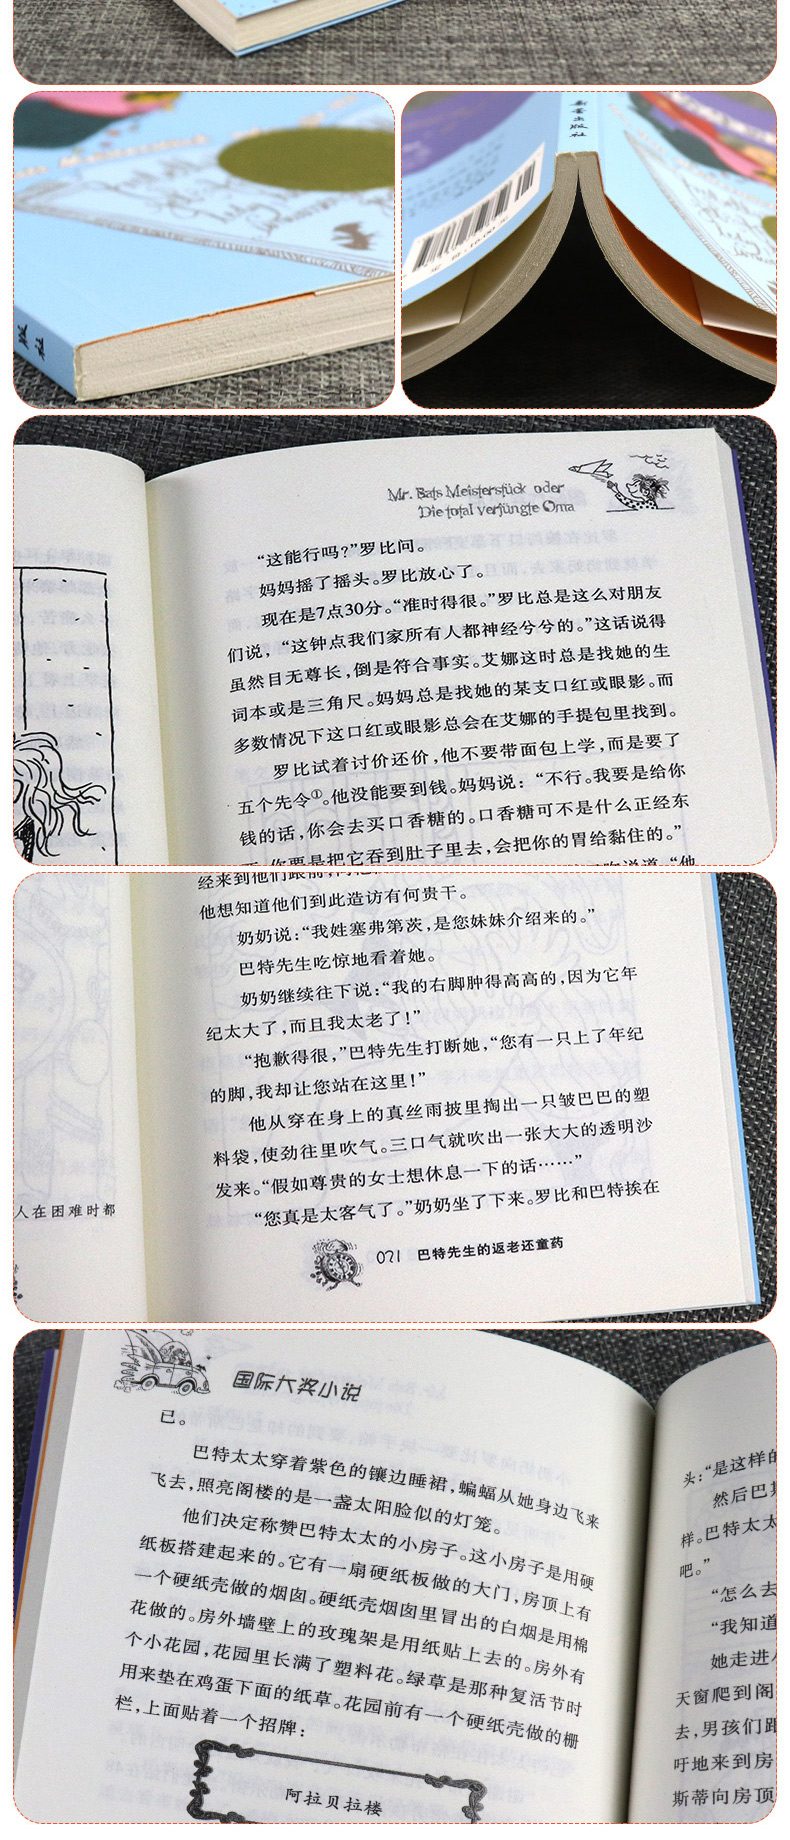 版 社
新蕾出版社
定价:16.00元
Mr. Bats Meisterstück oder
Die total verjüngte Oma
“这能行吗?”罗比问。
妈妈摇了摇头。罗比放心了。
现在是7点30分。“准时得很。”罗比总是这么对朋友
们说，“这钟点我们家所有人都神经兮兮的。”这话说得
虽然目无尊长，倒是符合事实。艾娜这时总是找她的生
词本或是三角尺。妈妈总是找她的某支口红或眼影。而
多数情况下这口红或眼影总会在艾娜的手提包里找到。
罗比试着讨价还价，他不要带面包上学，而是要了
五个先令①。他没能要到钱。妈妈说：“不行。我要是给你
钱的话，你会去买口香糖的。口香糖可不是什么正经东
你要是把它吞到肚子里去，会把你的胃给黏住的。”
经来到他们跟前，
说道，“他
他想知道他们到此造访有何贵干。
奶奶说：“我姓塞弗第茨，是您妹妹介绍来的。”
巴特先生吃惊地看着她。
奶奶继续往下说：“我的右脚肿得高高的，因为它年
纪太大了，而且我太老了！”
“抱歉得很，”巴特先生打断她，“您有一只上了年纪
的脚，我却让您站在这里！”
他从穿在身上的真丝雨披里掏出一只皱巴巴的塑
料袋，使劲往里吹气。三口气就吹出一张大大的透明沙
发来。“假如尊贵的女士想休息一下的话……”
“您真是太客气了。”奶奶坐了下来。罗比和巴特挨在
人在困难时都
021 巴特先生的返老还童药
国际大奖小说
已。
巴特太太穿着紫色的镶边睡裙，蝙蝠从她身边飞来
飞去，照亮阁楼的是一盏太阳脸似的灯笼。
他们决定称赞巴特太太的小房子。这小房子是用硬
纸板搭建起来的。它有一扇硬纸板做的大门，房顶上有
一个硬纸壳做的烟囱。硬纸壳烟囱里冒出的白烟是用棉
花做的。房外墙壁上的玫瑰架是用纸贴上去的。房外有
个小花园，花园里长满了塑料花。绿草是那种复活节时
用来垫在鸡蛋下面的纸草。花园前有一个硬纸壳做的栅
栏，上面贴着一个招牌：
阿拉贝拉楼
头：“是这样的
然后巴
样。巴特太太
吧。”
“怎么去
“我知道
她走进
天窗爬到阁
去，男孩们跟
吁地来到房
斯蒂向房顶